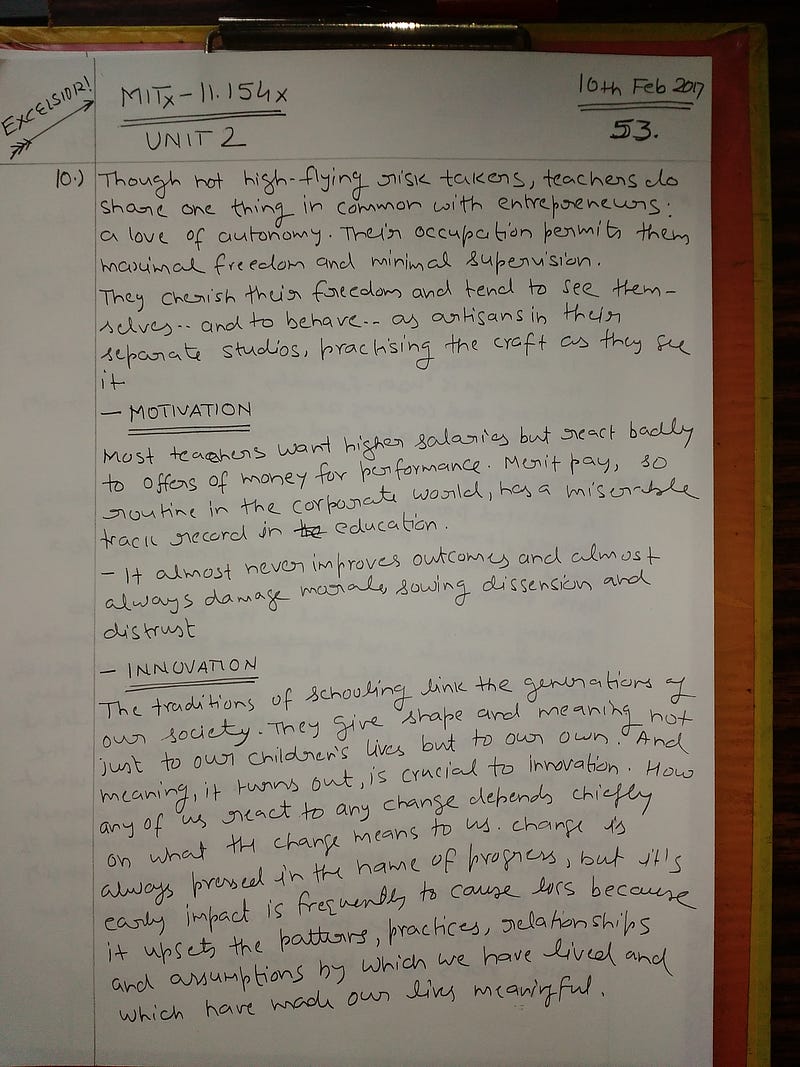 EXCELSIOR!
MITx - 11.154x
10th Feb 2017
UNIT 2
53.
10.) Though not high-flying risk takers, teachers do
share one thing in common with entrepreneurs:
a love of autonomy. Their occupation permits them
maximal freedom and minimal supervision.
They cherish their freedom and tend to see them-
selves-- and to behave-- as artisans in their
separate studios, practising the craft as they see
it
- MOTIVATION
Most teachers want higher salaries but react badly
to offers of money for performance. Merit pay, so
routine in the corporate world, has a miserable
track record in the education.
- It almost never improves outcomes and almost
always damage morale, sowing dissension and
distrust
- INNOVATION
The traditions of schooling link the generations of
our society. They give shape and meaning not
just to our children's lives but to our own. And
meaning, it turns out, is crucial to innovation. How
any of us react to any change depends chiefly
on what the change means to us. change is
always pressed in the name of progress, but it's
early impact is frequently to cause loss because
it upsets the patterns, practices, relationships
and assumptions by which we have lived and
which have made our lives meaningful.